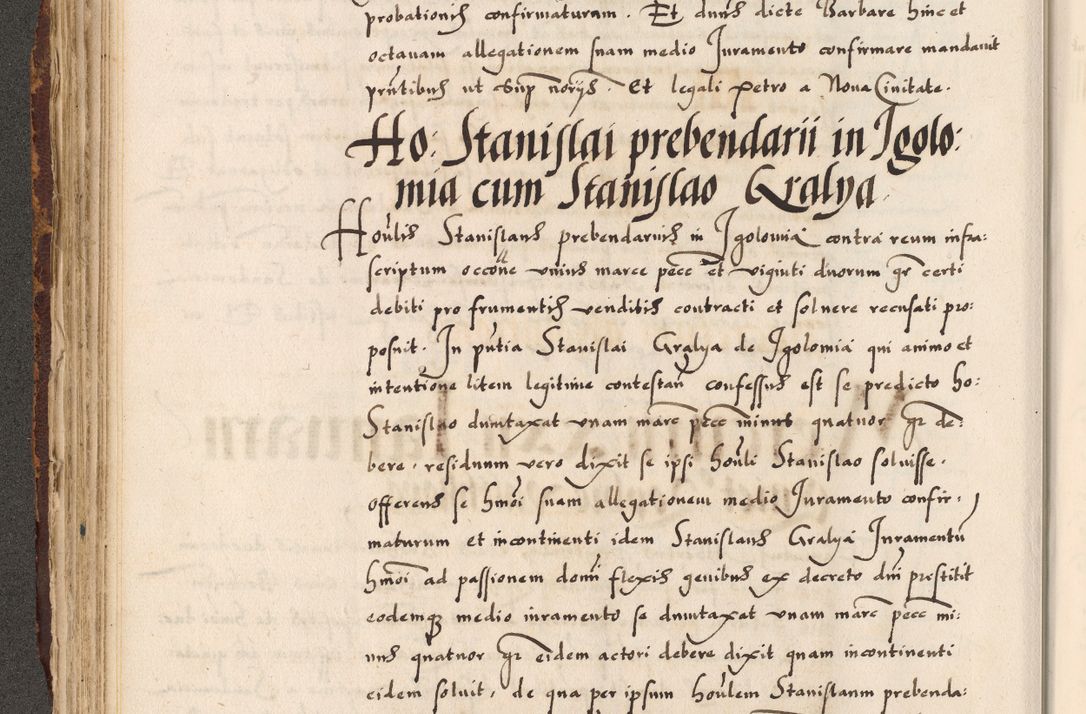 probationis confirmaturam. Et dnus dicte Barbare hinc et
octavam allegationem suam medio Juramento confirmare mandavit
pntibus ut Sup noriis. Et legali Petro a Nova Civitate.
Ho: Stanislai prebendarii in Igolo:
mia cum Stanislao Gralya.
Honlis Stanislaus prebendarius in Igolomia contra reum infra:
scriptum occone unius marce pecc et viginti duorum gr certi
debiti pro frumentis venditis contracti et solvere recusati pro:
posuit. In pntia Stanislai Gralya de Igolomia qui animo et
intentione litem legitime contestan confessus est se predicto ho:
Stanislao duntaxat unam marc pecc minus quatuor gr de:
bere. residuum vero dixit se ipsi honli Stanislao solvisse.
offerens se hmoi suam allegationem medio Juramento confir:
maturum et incontinenti idem Stanislaus Gralya Juramentu
hmoi ad passionem domi flexis genibus ex decreto dni prestitit
eodemq medio iuramento se duntaxat unam marc pecc mi:
nus quatuor gr eidem actori debere dixit quam incontinenti
eidem solvit, de qua per ipsum honlem Stanislaum prebenda: